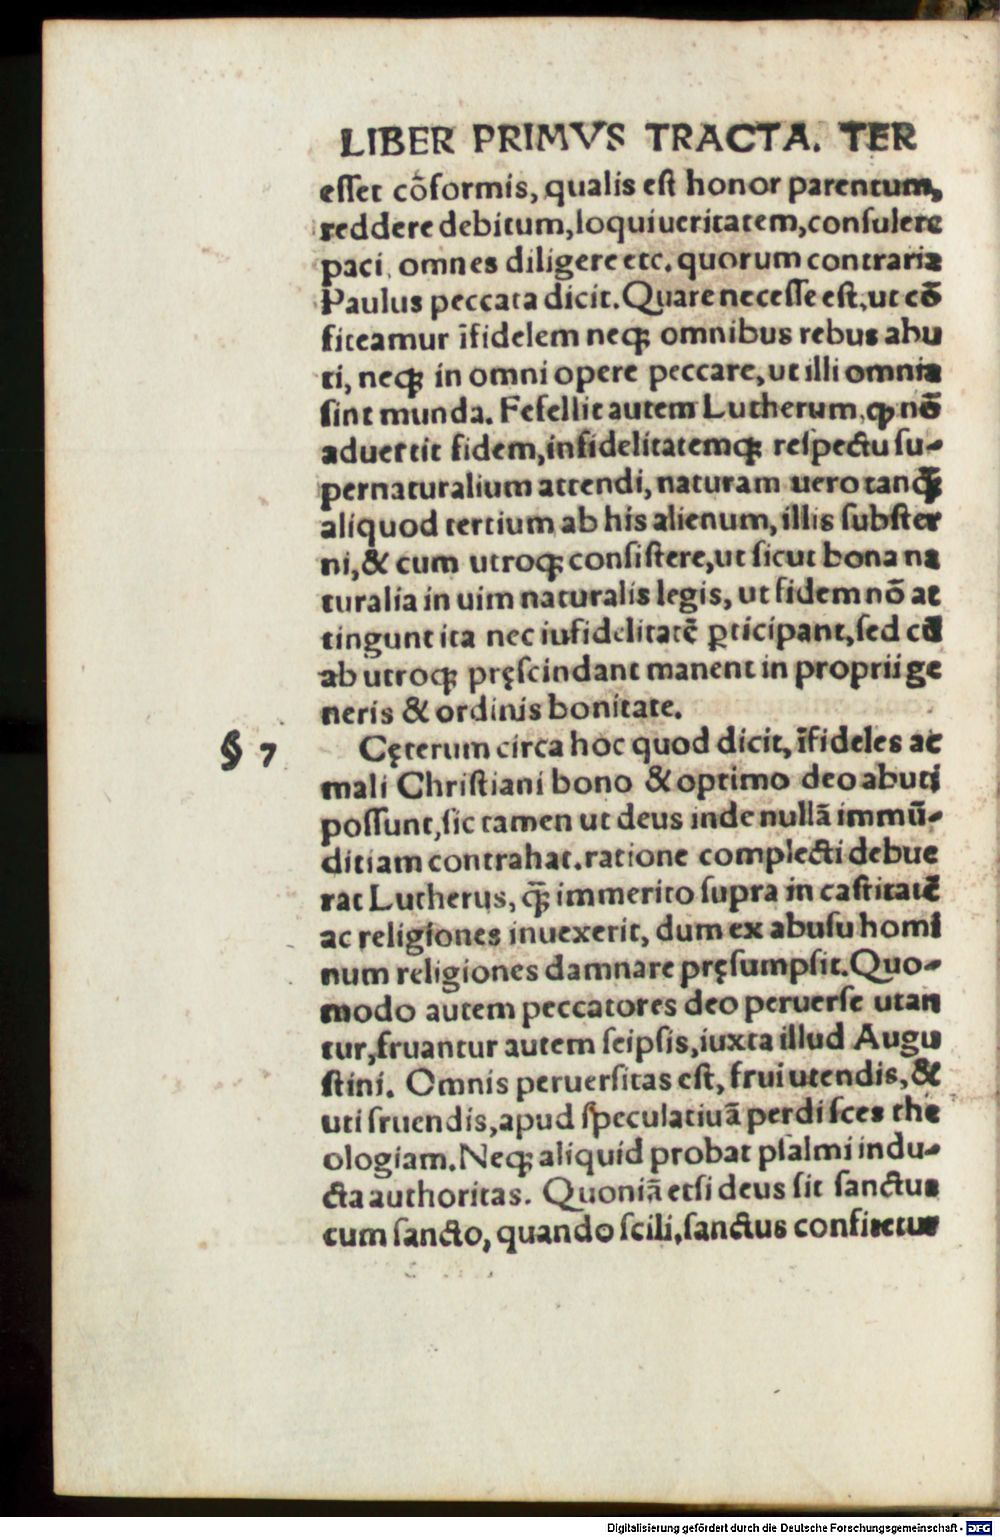 LIBER PRIMVS TRACTA. TER
eſſet cōformis, qualis eſt honor parentum,
reddere debitum, loqui ueritatem, conſulere
paci, omnes diligere etc. quorum contraria
Paulus peccata dicit. Quare neceſſe eſt, ut cō
fiteamur īfidelem neqꝫ omnibus rebus abu
ti, neqꝫ in omni opere peccare, ut illi omnia
ſint munda. Fefellit autem Lutherum, ꝙ nō
aduertit fidem, infidelitatemqꝫ reſpectu ſu-
pernaturalium attendi, naturam uero tanꝗ̄
aliquod tertium ab his alienum, illis ſubſter
ni, & cum utroqꝫ conſiſtere, ut ſicut bona na
turalia in uim naturalis legis, ut fidem nō at
tingunt ita nec iufidelitatē ꝑticipant, ſed cū
ab utroqꝫ pręſcindant manent in proprii ge
neris & ordinis bonitate.
§ 7 Cęterum circa hoc quod dicit, īfideles ac
mali Chriſtiani bono & optimo deo abuti
poſſunt, ſic tamen ut deus inde nullā immū-
ditiam contrahat. ratione complecti debue
rat Lutherus, ꝗ̄ immerito ſupra in caſtitatē
ac religiones inuexerit, dum ex abuſu homi
num religiones damnare pręſumpſit. Quo-
modo autem peccatores deo peruerſe utan
tur, fruantur autem ſeipſis, iuxta illud Augu
ſtini. Omnis peruerſitas eſt, frui utendis, &
uti fruendis, apud ſpeculatiuā perdiſces the
ologiam. Neqꝫ aliquid probat pſalmi indu-
cta authoritas. Quoniā etſi deus ſit ſanctus
cum ſancto, quando ſcili, ſanctus confitetur
Digitalisierung gefördert durch die Deutsche Forschungsgemeinschaft - DFG